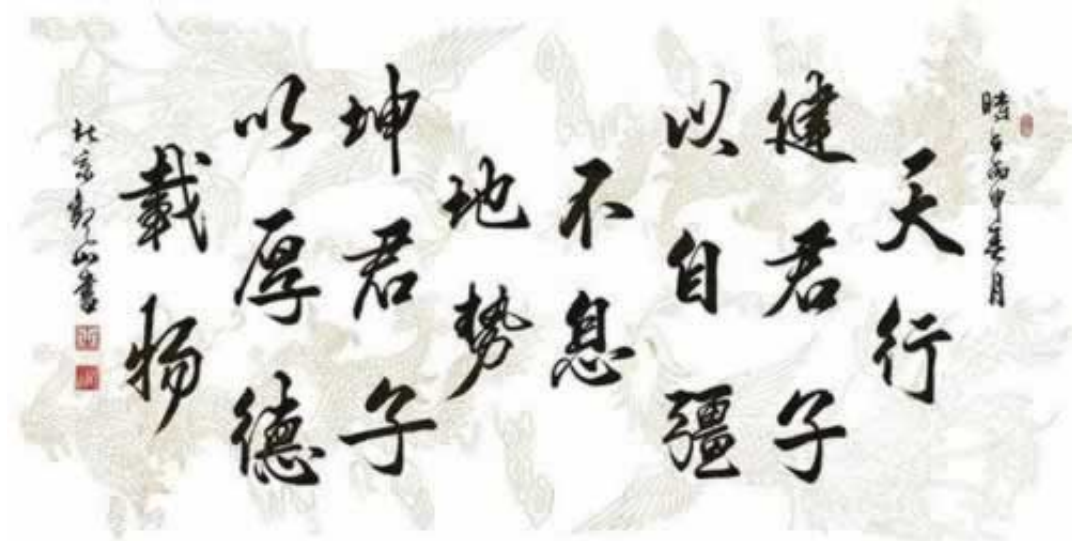 時在丙申春月
天行
健君子
以自彊
不息
地勢
坤君子
以厚德
載物
北京郭山書